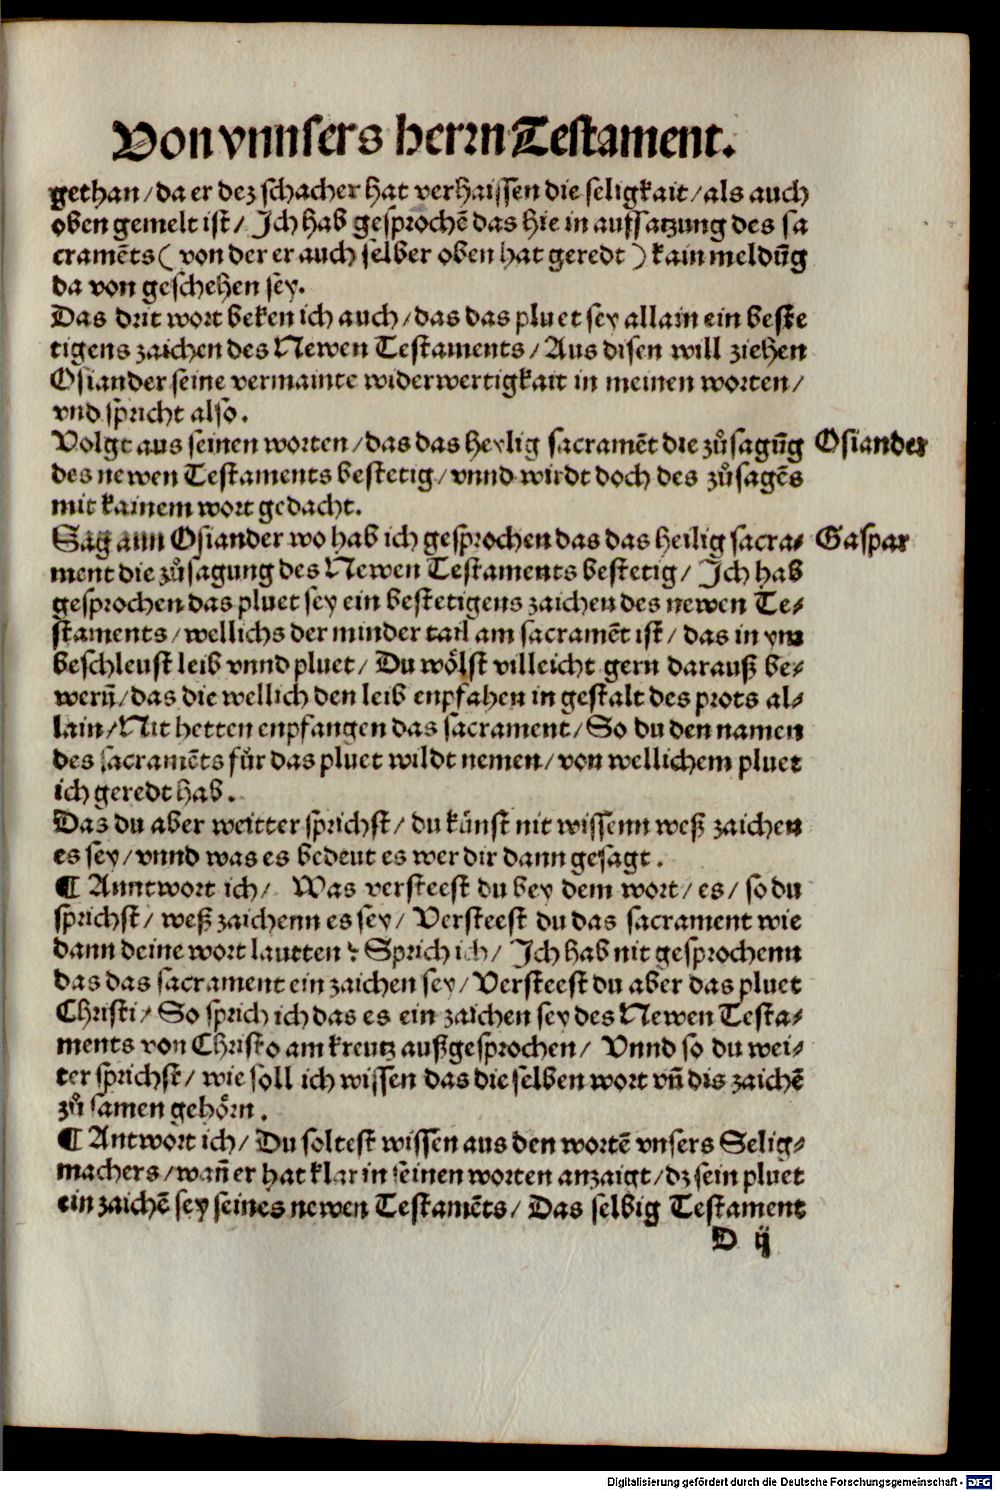 Von vnnsers herrn Testament.
gethan/ da er dez schacher hat verhaissen die seligkait/ als auch
oben gemelt ist/ Ich hab gesprochē das hie in auffsatzung des sa
cramēts ( von der er auch selber oben hat geredt ) kain meldūg
da von geschehen sey.
Das drit wort beken ich auch/ das das pluet sey allain ein beste
tigens zaichen des Newen Testaments/ Aus disen will ziehen
Osiander seine vermainte widerwertigkait in meinen worten/
vnd spricht also.
Volgt aus seinen worten/ das das heylig sacramēt die zůsagūg Osiander
des newen Testaments bestetig/ vnnd wirdt doch des zůsagēs
mit kainem wort gedacht.
Sag ann Osiander wo hab ich gesprochen das das heilig sacra- Gaspar
ment die zůsagung des Newen Testaments bestetig/ Ich hab
gesprochen das pluet sey ein bestetigens zaichen des newen Te-
staments/ wellichs der minder tail am sacramēt ist/ das in ym
beschleust leib vnnd pluet/ Du wölst villeicht gern darauß be-
wern̄/ das die wellich den leib enpfahen in gestalt des prots al-
lain/ Nit hetten enpfangen das sacrament/ So du den namen
des sacramēts für das pluet wildt nemen/ von wellichem pluet
ich geredt hab.
Das du aber weitter sprichst/ du künst nit wissenn weß zaichen
es sey/ vnnd was es bedeut es wer dir dann gesagt.
¶ Anntwort ich/ Was versteest du bey dem wort/ es/ so du
sprichst/ weß zaichenn es sey/ Versteest du das sacrament wie
dann deine wort lautten : Sprich ich/ Ich hab nit gesprochenn
das das sacrament ein zaichen sey/ Versteest du aber das pluet
Christi/ So sprich ich das es ein zaichen sey des Newen Testa-
ments von Christo am kreutz außgesprochen/ Vnnd so du wei-
ter sprichst/ wie soll ich wissen das die selben wort vn̄ dis zaichē
zů samen gehörn.
¶ Antwort ich/ Du soltest wissen aus den wortē vnsers Selig-
machers/ wan̄ er hat klar in seinen worten anzaigt/ dz sein pluet
ein zaichē sey seines newen Testamēts/ Das selbig Testament
D ij
Digitalisierung gefördert durch die Deutsche Forschungsgemeinschaft - DFG